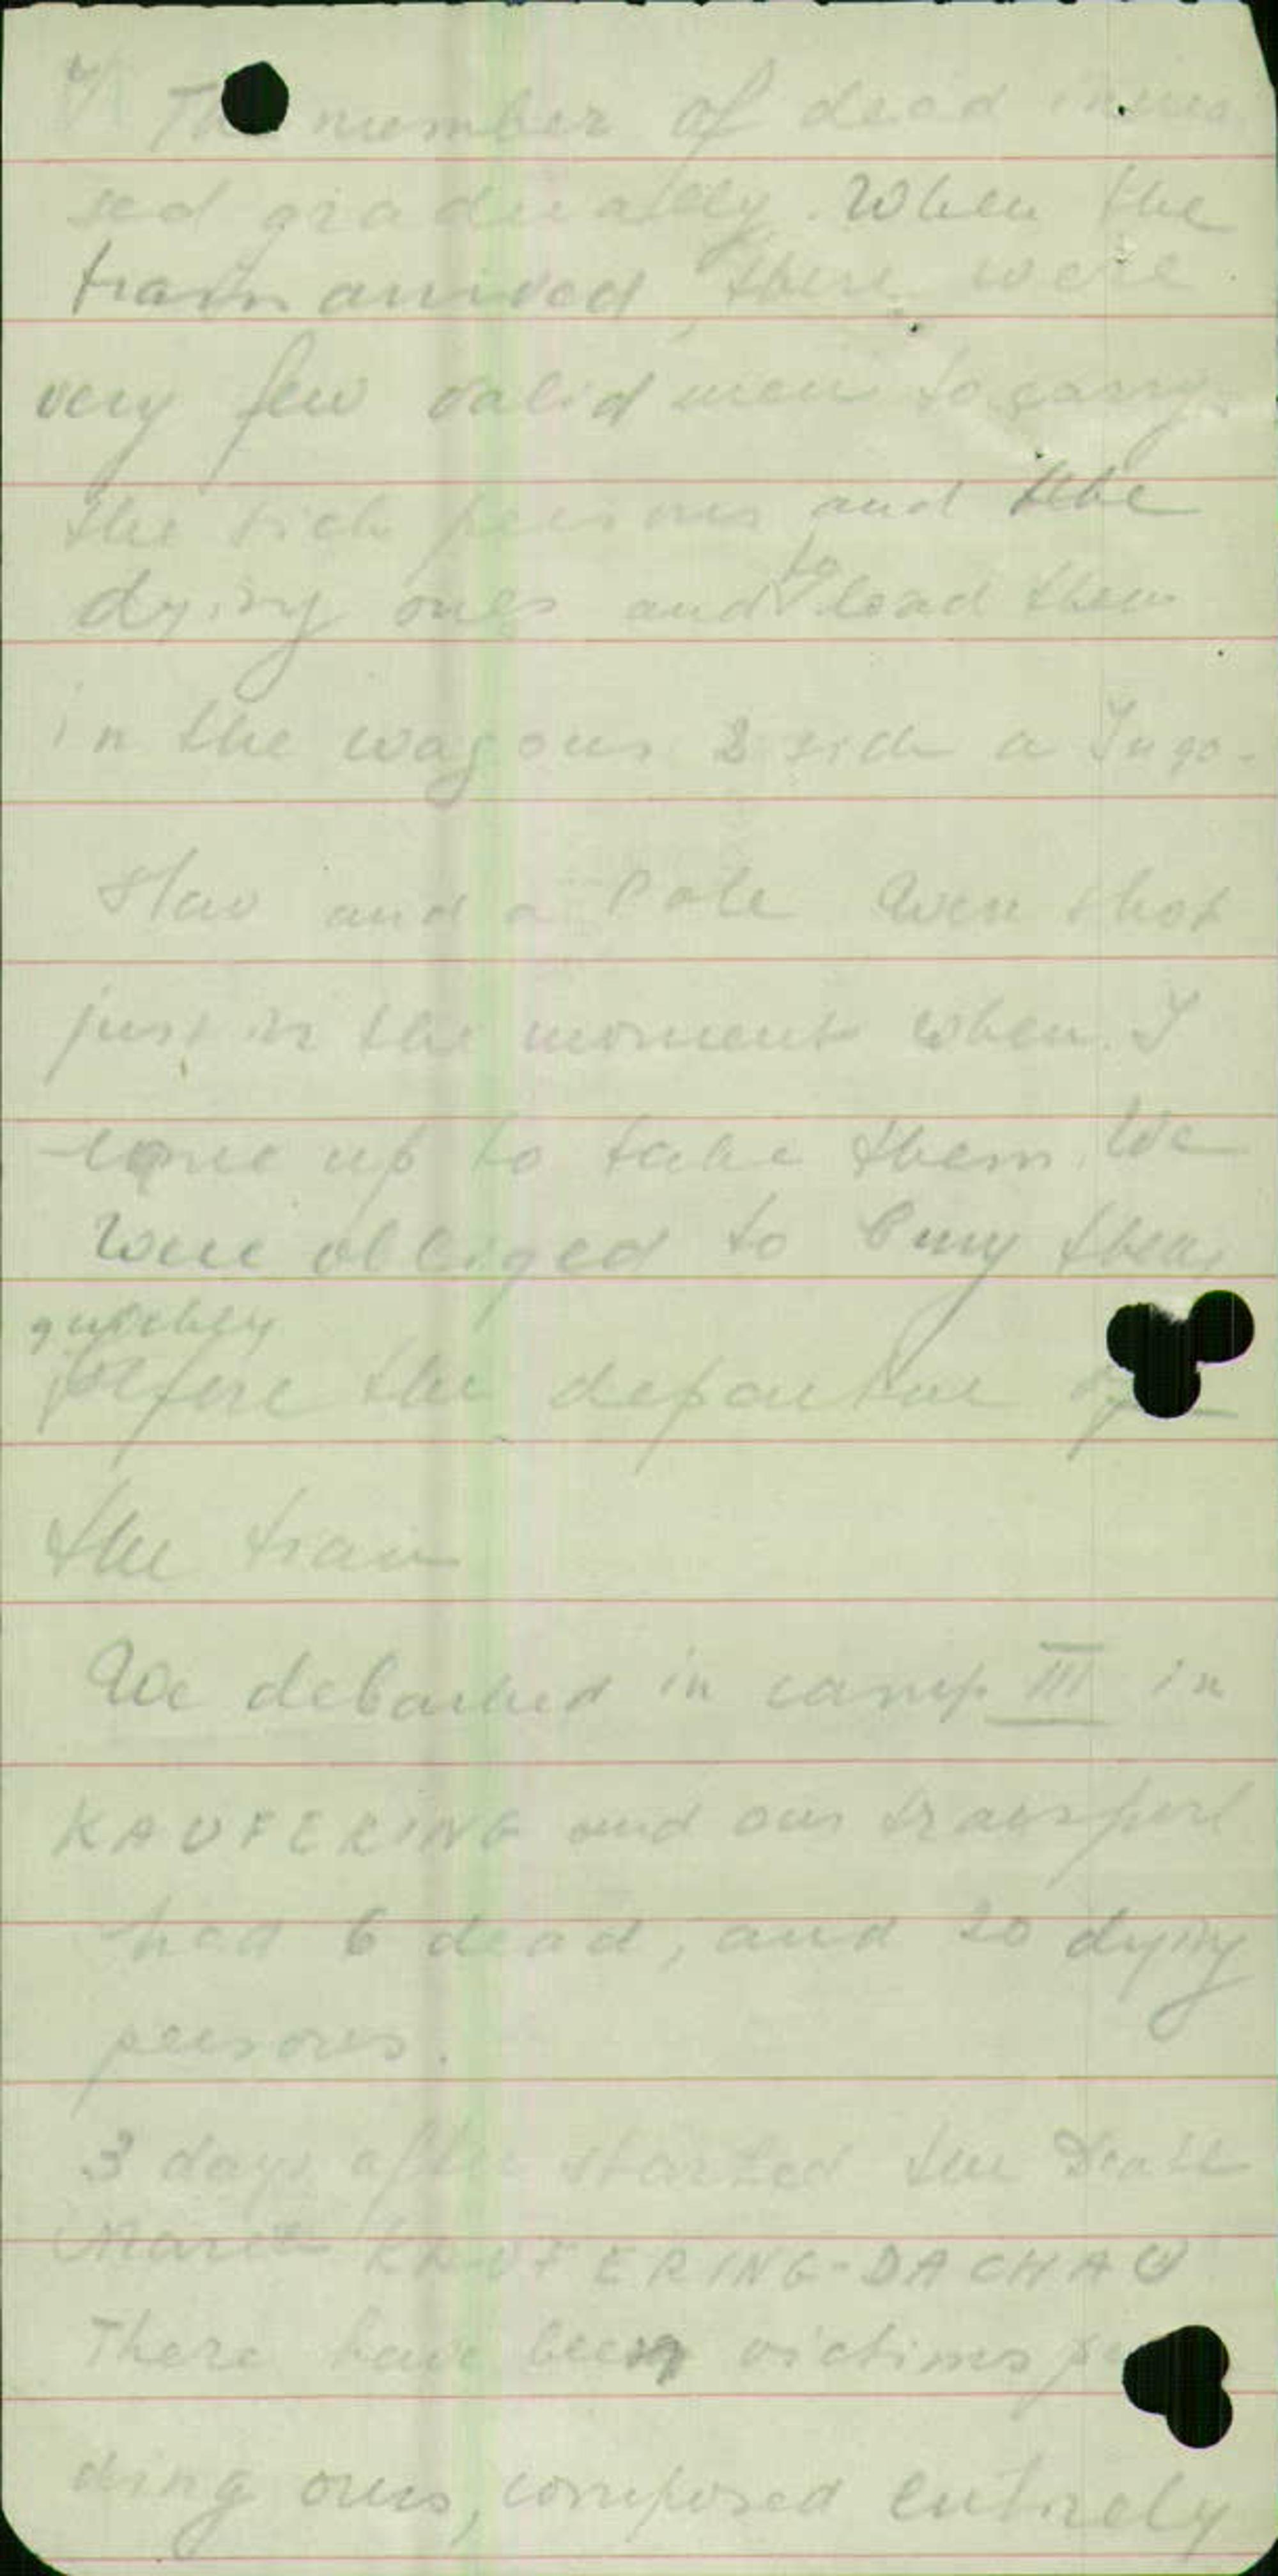 The number of dead increa
sed gradually. When the
train arrived, there were
very few valid men to carry
the sick persons and the
dying ones and to load them
in the wagons 2 sick a Jugo-
slav and a Pole were shot
just in the moment when I
came up to take them. We
were obliged to bury them
quickly
before the departure of
the train
We debarked in camp III in
KAUFERING and our transport
had 6 dead, and 20 dying
persons.
3 days after started the Death
March KAUFERING-DACHAU
There have been victims
ding ours, composed entirely